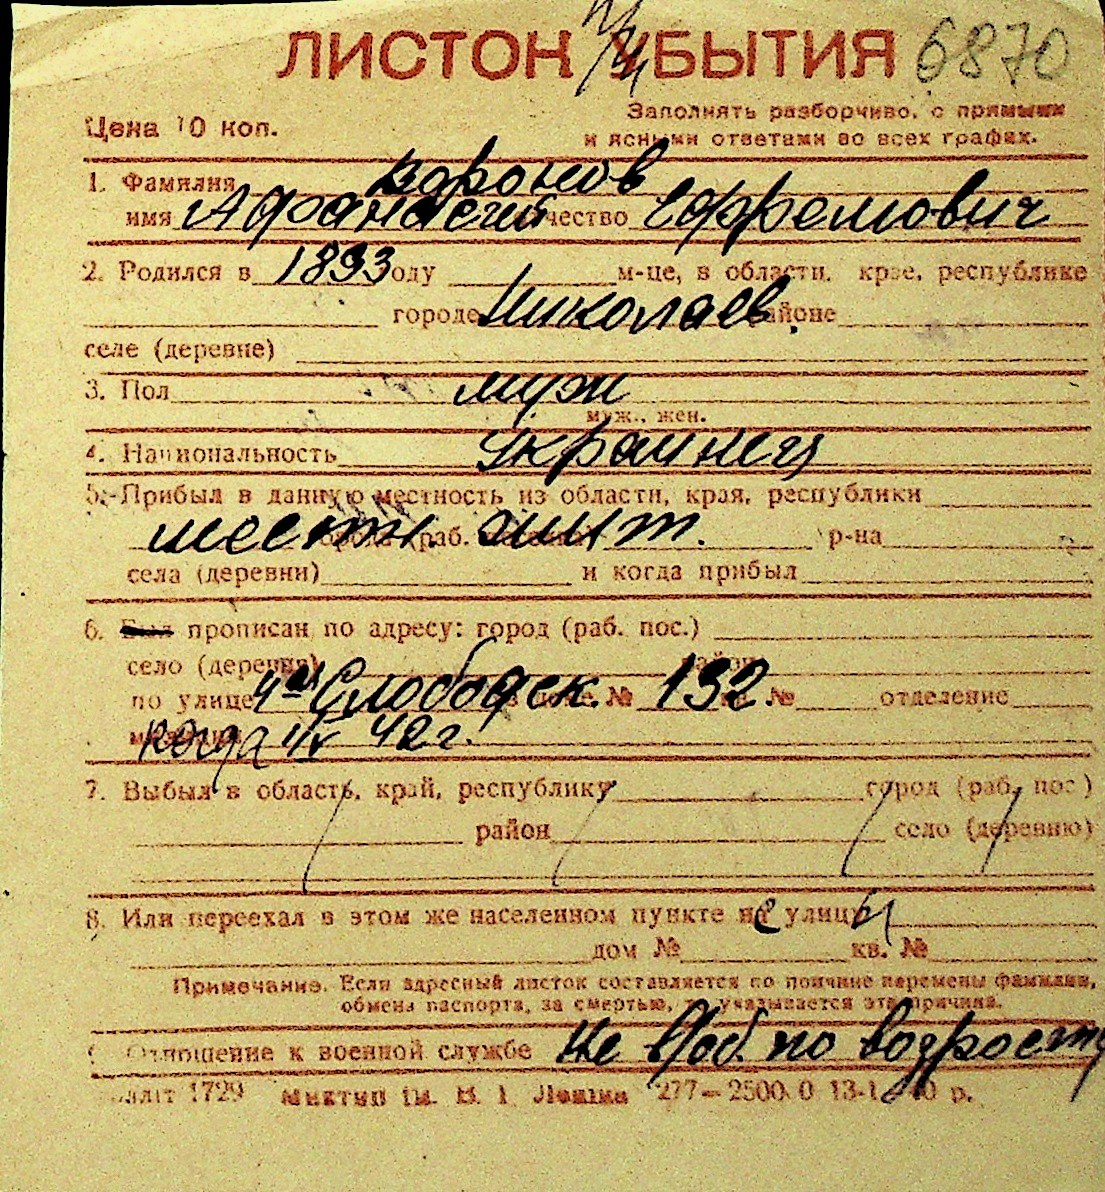 ЛИСТОК УБЫТИЯ 6870
Цена 10 коп.
Заполнять разборчиво, с прямыми
и ясными ответами во всех графах.
1. Фамилия Воронов
имя Афанасий отчество Ефремович
2. Родился в 1893 году м-це, в области, крае, республике
городе Николаев. районе
селе (деревне)
3. Пол муж
муж., жен.
4. Национальность украинец
5. Прибыл в данную местность из области, края, республики
местн. города (раб. р-на
села (деревни) и когда прибыл
6. Был прописан по адресу: город (раб. пос.)
село (деревня) район
по улице 4ая Слободск. в доме № 132 кв. № отделение
когда 42 г.
7. Выбыл в область, край, республику город (раб. пос.)
район село (деревню)
8. Или переехал в этом же населенном пункте на улицу
дом № кв. №
Примечание. Если адресный листок составляется по причине перемены фамилии,
обмена паспорта, за смертью, то указывается эта причина.
Отношение к военной службе не в/об. по возрасту
1729 277—2500.0 13-1 40 р.